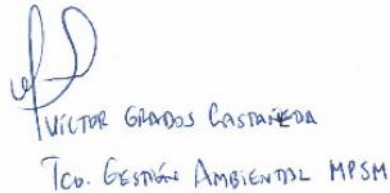 VICTOR GRADOS CASTAÑEDA
TCO. GESTIÓN AMBIENTAL MPSM